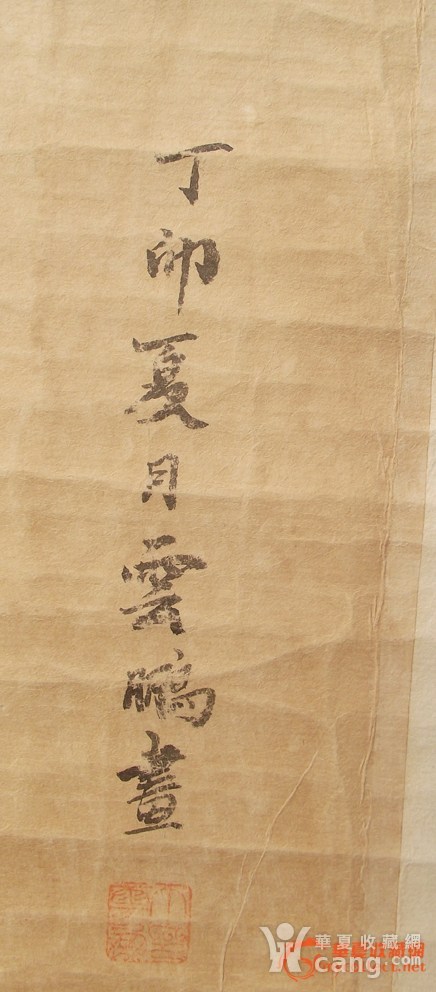 丁卯夏月雲鵬畫
華夏收藏網
cang.com